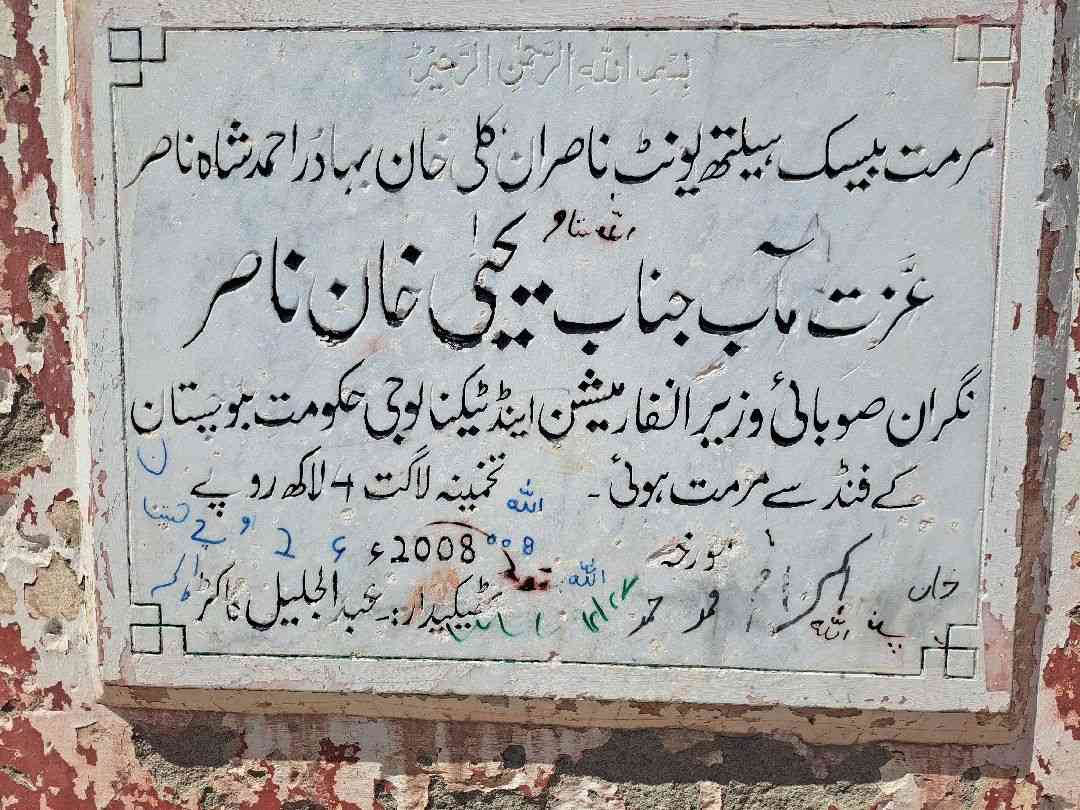 بسم اللہ الرحمٰن الرحیم
مرمت بیسک ہیلتھ یونٹ ناصران کلی خان بہادر احمد شاہ ناصر
عزّت مآب جناب یحیٰی خان ناصر
نگران صوبائی وزیر انفارمیشن اینڈ ٹیکنالوجی حکومت بلوچستان
کے فنڈ سے مرمت ہوئی ۔ تخمینہ لاگت 4 لاکھ روپے
اللہ
مورخہ 2008ء
اللہ
ٹھیکیدار:۔ عبدالجلیل کاکڑ
خان
اللہ